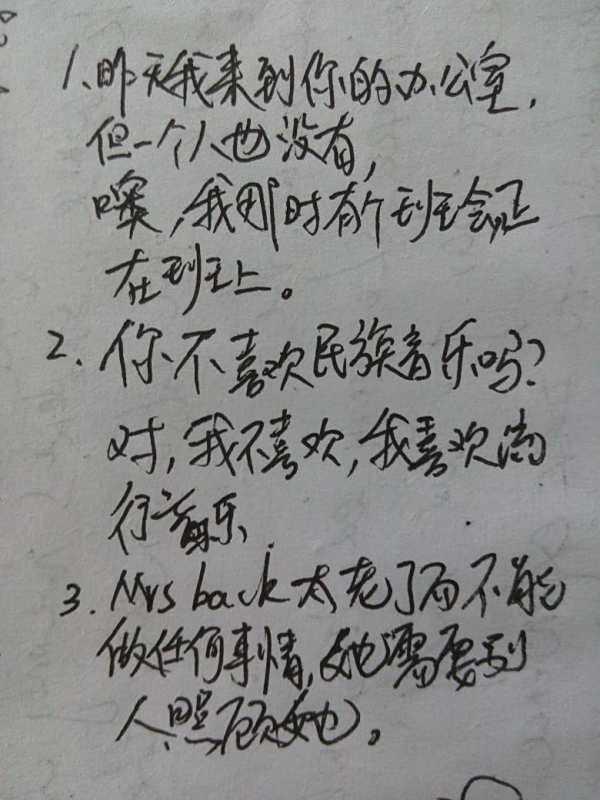 1、昨天我来到你的办公室,
但一个人也没有,
噢,我那时有个班会,正
在班上。
2、你不喜欢民族音乐吗?
对,我不喜欢,我喜欢尚
行音乐.
3. Mrs back 太老了而不能
做任何事情,她需要别
人照顾她。